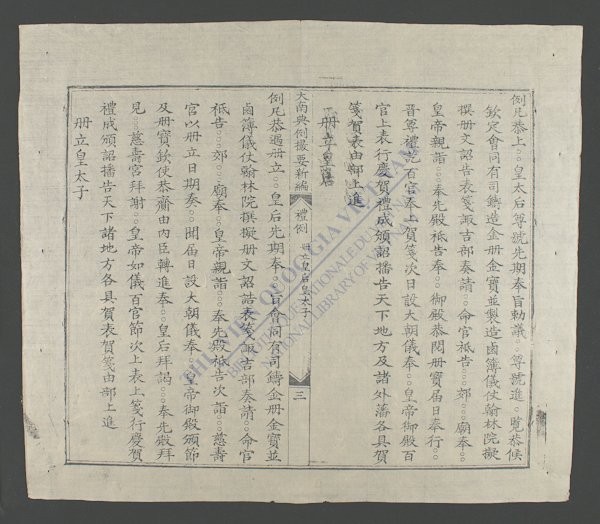 例凡恭上○○皇太后尊號先期奉旨勅議○○尊號進○○覽恭候
欽定會同有司鑄造金册金寶並製造鹵簿儀仗翰林院擬
撰册文詔告表箋諏吉部奏請○○命官祗告○○郊○○廟奉○○
皇帝親詣○○奉先殿祗告奉○○御殿恭閱册寶屆日奉行○○
晉尊禮荒百官奉上賀箋次日設大朝儀奉○○皇帝御殿百
官上表行慶賀禮成頒詔播告天下地方及諸外藩各具賀
箋賀表由部上進
一册立皇后
大南典例撮要新編
禮例
册立皇后皇太子
三
例凡恭遇册立○○皇后先期奉○○旨會同有司鑄金册金寶並
鹵簿儀仗翰林院撰擬册文詔誥表箋諏吉部奏請○○命官
祗告○○郊○○廟奉○○皇帝親詣○○奉先殿祗告次詣○○慈壽
官以册立日期奉○○聞屆日設大朝儀奉○○皇帝御殿頒節
及册寶欽使恭齎由內臣轉進奉○○皇后拜謁○○奉先殿拜
見○○慈壽宮拜謝○○皇帝如儀百官節次上表上箋行慶賀
禮成頒詔播告天下地方各具賀表賀箋由部上進
册立皇太子
THƯ VIỆN QUỐC GIA VIỆT NAM
BIBLIOTHÈQUE NATIONALE DU VIETNAM
NATIONAL LIBRARY OF VIETNAM